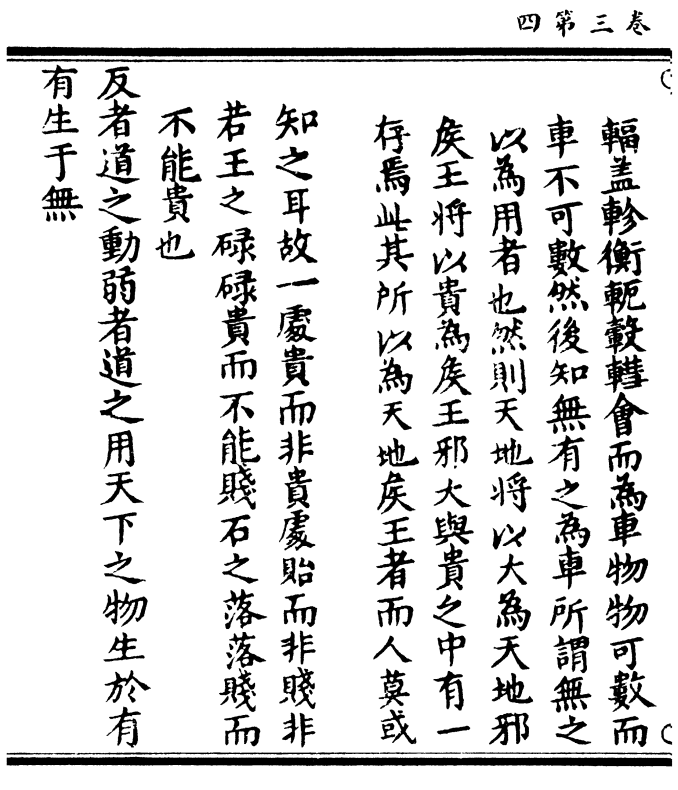 卷三第四
輻盖軫衡軛轂轊會而為車物物可數而
車不可數然後知無有之為車所謂無之
以為用者也然則天地将以大為天地邪
矦王将以貴為矦王邪大與貴之中有一
存焉此其所以為天地矦王者而人莫或
知之耳故一處貴而非貴處貽而非賤非
若王之碌碌貴而不能賤石之落落賤而
不能貴也
反者道之動弱者道之用天下之物生於有
有生于無